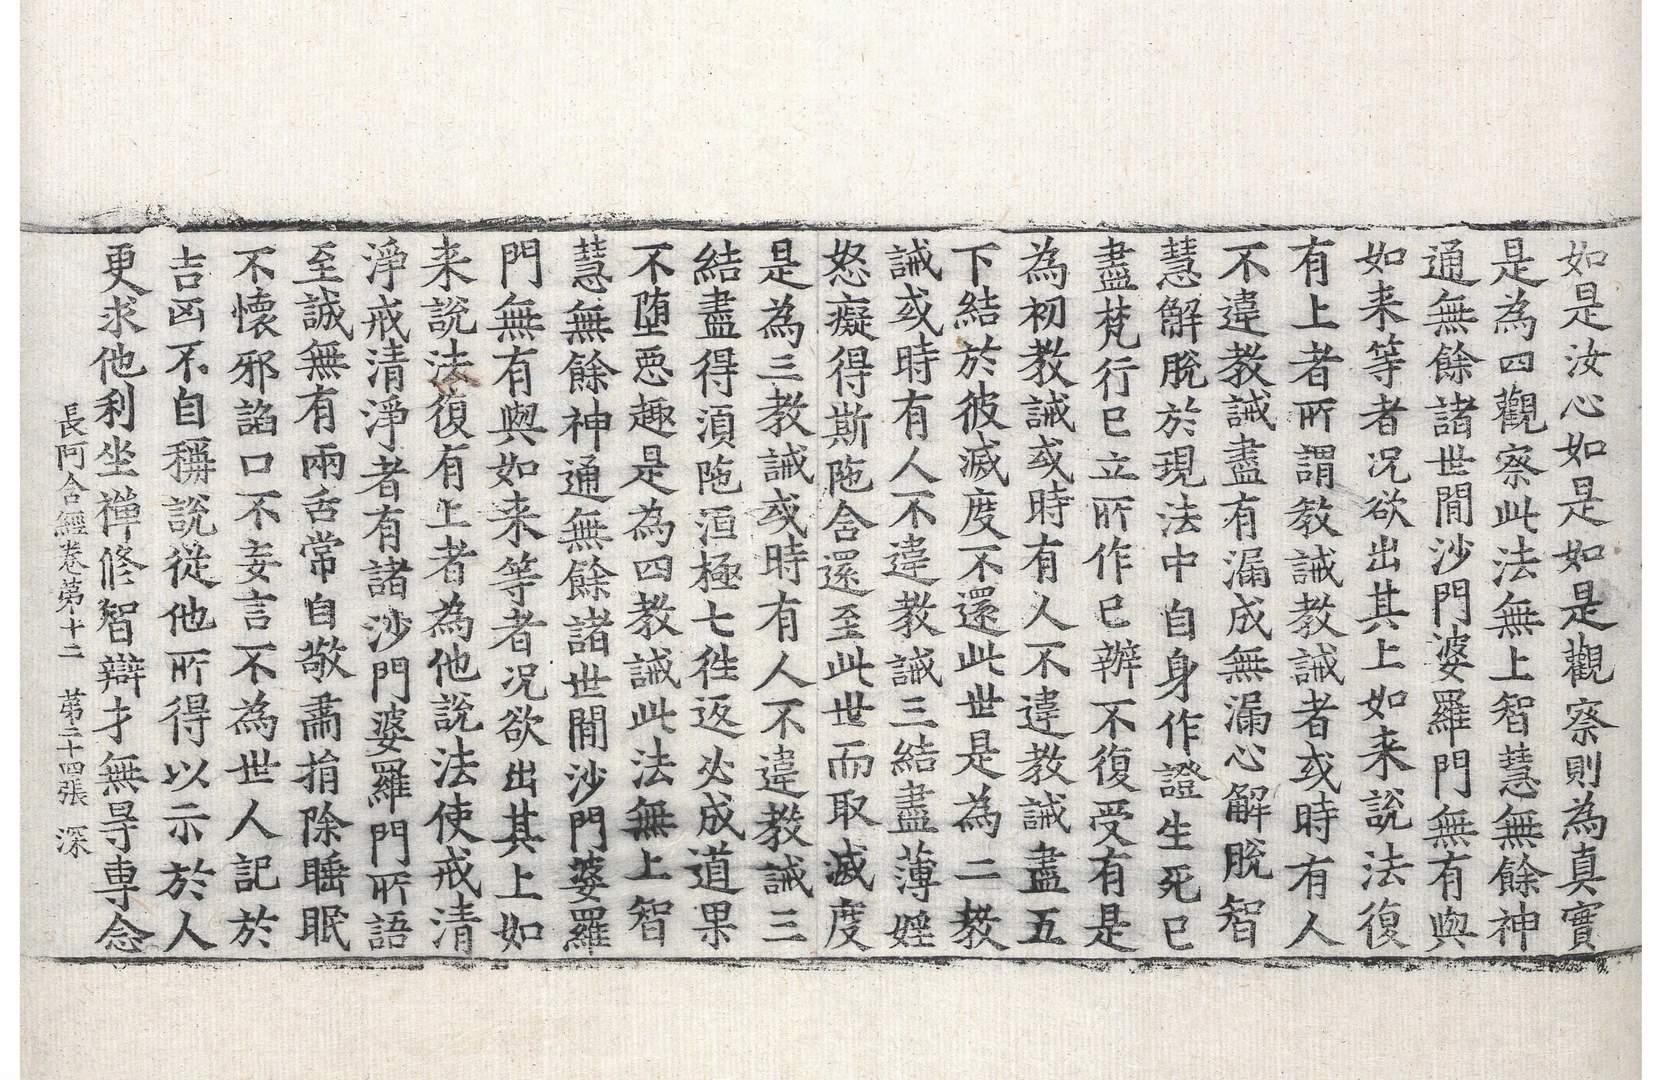 如是汝心如是如是觀察則為真實
是為四觀察此法無上智慧無餘神
通無餘諸世間沙門婆羅門無有與
如来等者况欲出其上如来說法復
有上者所謂教誡教誡者或時有人
不違教誡盡有漏成無漏心解脫智
慧解脫於現法中自身作證生死已
盡梵行已立所作已辦不復受有是
為初教誡或時有人不違教誡盡五
下結於彼滅度不還此世是為二教
誡或時有人不違教誡三結盡薄婬
怒癡得斯陁含還至此世而取滅度
是為三教誡或時有人不違教誡三
結盡得湏陁洹極七徃返必成道果
不墮惡趣是為四教誡此法無上智
慧無餘神通無餘諸世間沙門婆羅
門無有與如来等者况欲出其上如
来說法復有上者為他說法使戒清
淨戒清淨者有諸沙門婆羅門所語
至誠無有兩舌常自敬肅捐除睡眠
不懷邪諂口不妄言不為世人記於
吉凶不自稱說從他所得以示於人
更求他利坐禪修智辯才無㝵專念
長阿含經卷第十二　第二十四張　深